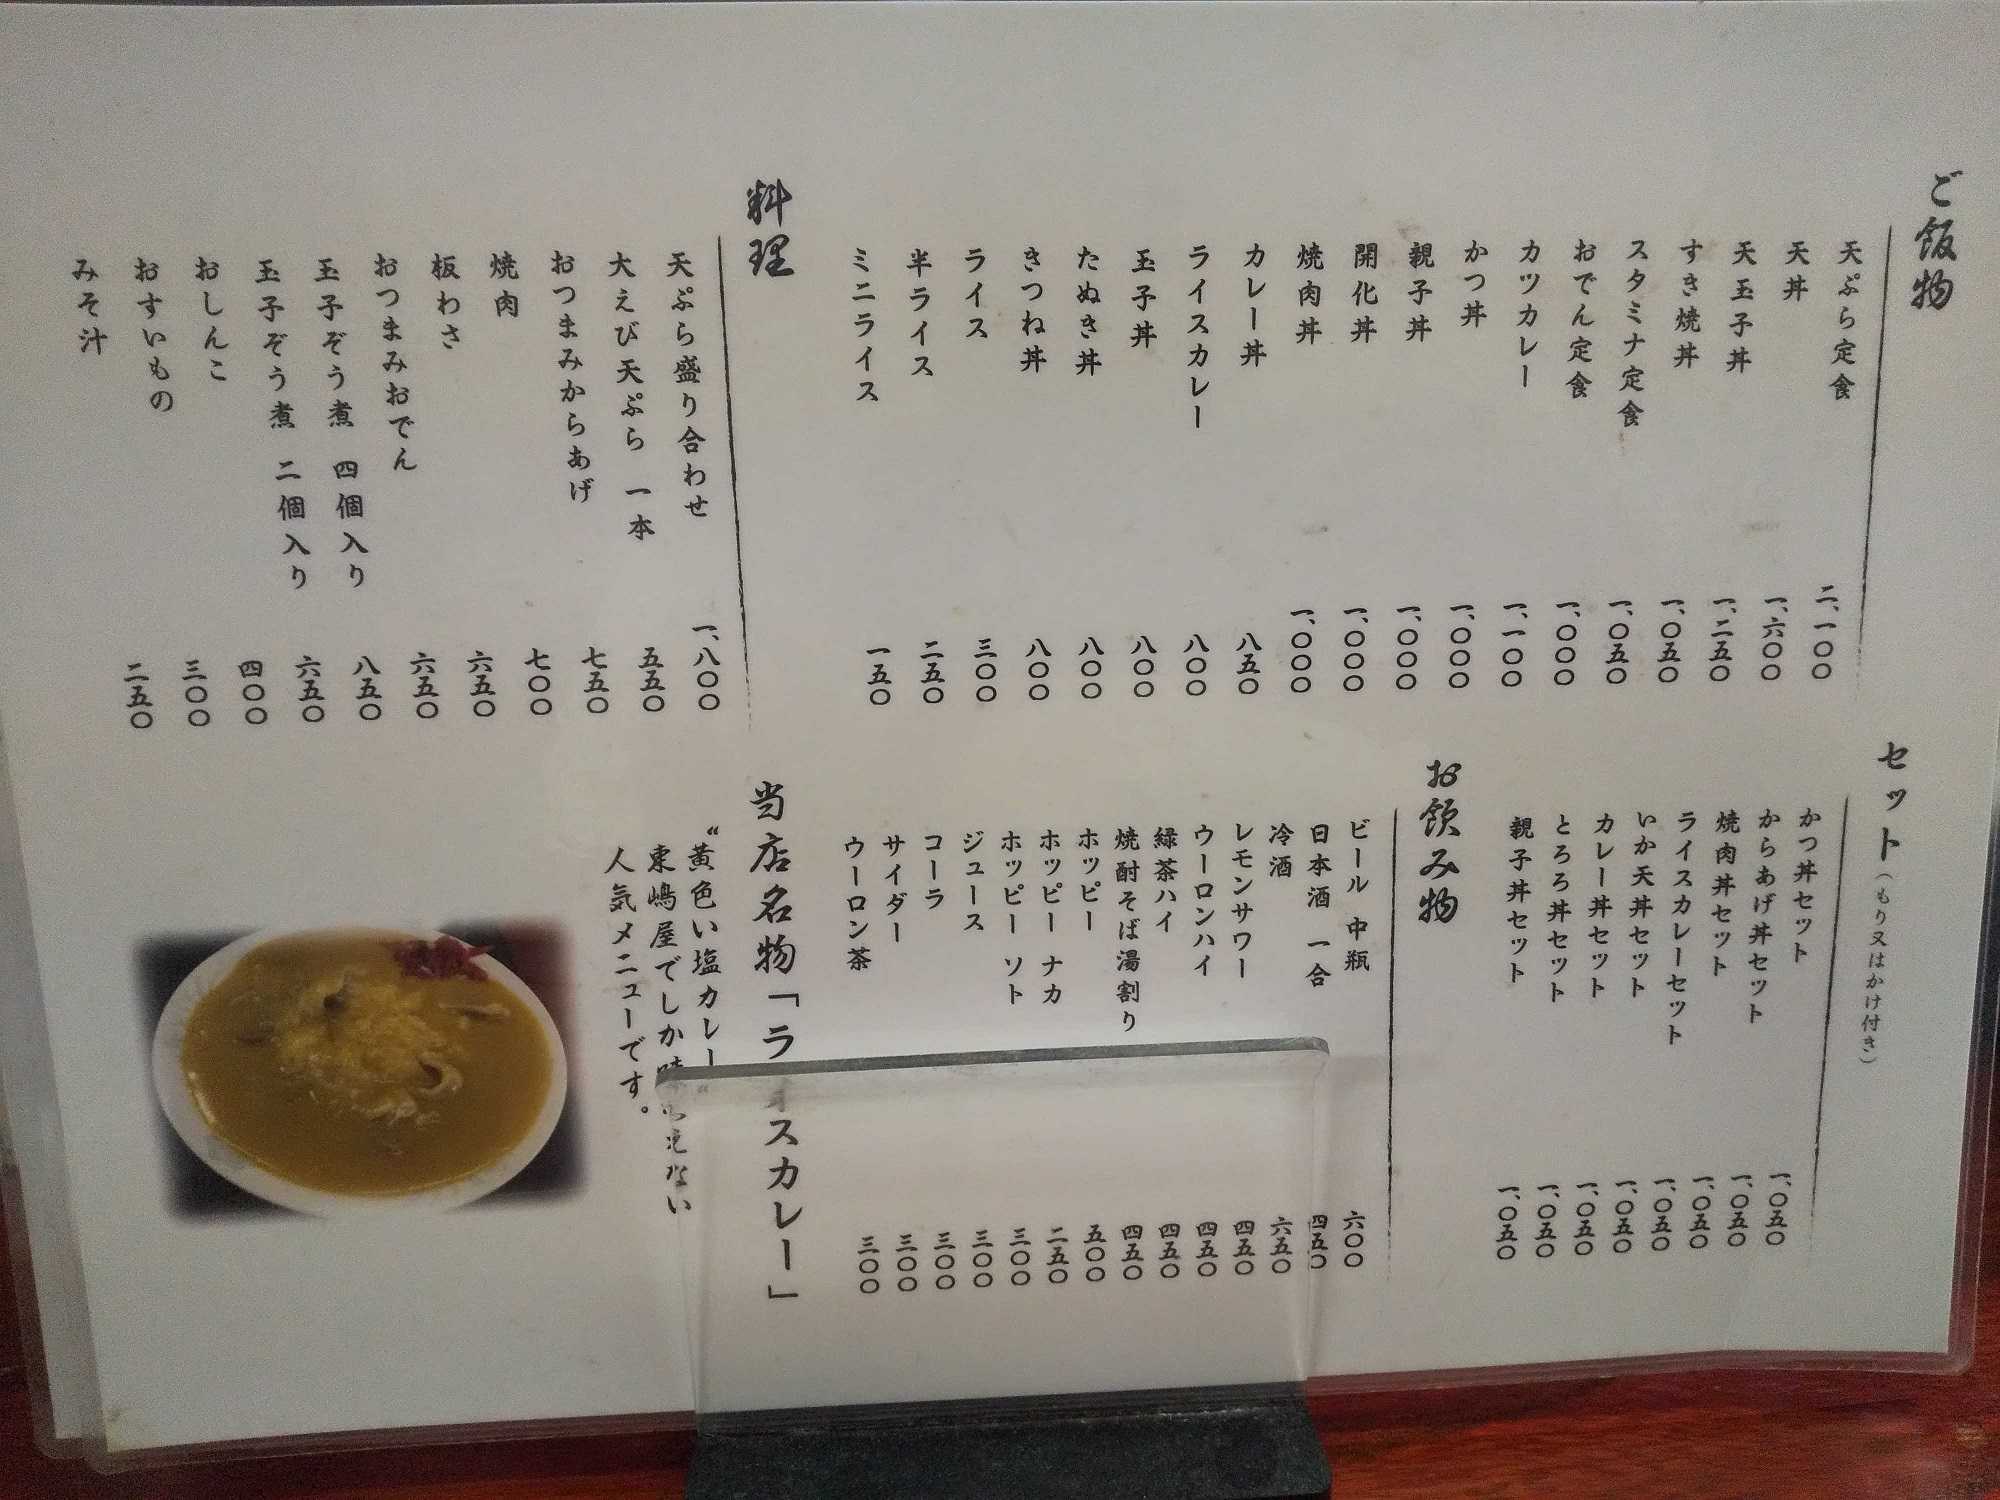 ご飯物
天ぷら定食 二、一〇〇
天丼 一、六〇〇
天玉子丼 一、二五〇
すき焼丼 一、〇五〇
スタミナ定食 一、〇五〇
おでん定食 一、〇〇〇
カツカレー 一、一〇〇
かつ丼 一、〇〇〇
親子丼 一、〇〇〇
開化丼 一、〇〇〇
焼肉丼 一、〇〇〇
カレー丼 八五〇
ライスカレー 八〇〇
玉子丼 八〇〇
たぬき丼 八〇〇
きつね丼 八〇〇
ライス 三〇〇
半ライス 二五〇
ミニライス 一五〇
料理
天ぷら盛り合わせ 一、八〇〇
大えび天ぷら 一本 五五〇
おつまみからあげ 七五〇
焼肉 七〇〇
板わさ 六五〇
おつまみおでん 六五〇
玉子ぞう煮 四個入り 八五〇
玉子ぞう煮 二個入り 六五〇
おしんこ 四〇〇
おすいもの 三〇〇
みそ汁 二五〇
セット(もり又はかけ付き)
かつ丼セット 一、〇五〇
からあげ丼セット 一、〇五〇
焼肉丼セット 一、〇五〇
ライスカレーセット 一、〇五〇
いか天丼セット 一、〇五〇
カレー丼セット 一、〇五〇
とろろ丼セット 一、〇五〇
親子丼セット 一、〇五〇
お飲み物
ビール 中瓶 六〇〇
日本酒 一合 四五〇
冷酒 六五〇
レモンサワー 四五〇
ウーロンハイ 四五〇
緑茶ハイ 四五〇
焼酎そば湯割り 四五〇
ホッピー 五〇〇
ホッピー ナカ 二五〇
ホッピー ソト 三〇〇
ジュース 三〇〇
コーラ 三〇〇
サイダー 三〇〇
ウーロン茶 三〇〇
当店名物「ライスカレー」
“黄色い塩カレー”
東嶋屋でしか味わえない
人気メニューです。